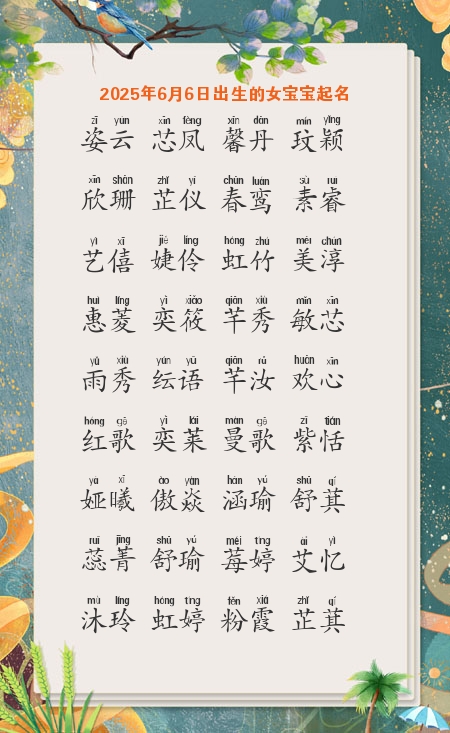 2025年6月6日出生的女宝宝起名
zī yún xīn fèng xīn dān mín yǐng
姿云 芯凤 馨丹 玟颖
xīn shān zhǐ yí chūn luán sù ruì
欣珊 芷仪 春鸾 素睿
yì xī jié líng hóng zhú měi chún
艺僖 婕伶 虹竹 美淳
huì líng yì xiǎo qiān xiù mǐn xīn
惠菱 奕筱 芊秀 敏芯
yǔ xiù yún yǔ qiān rǔ huān xīn
雨秀 纭语 芊汝 欢心
hóng gē yì lái màn gē zǐ tián
红歌 奕莱 曼歌 紫恬
yà xī ào yàn hán yú shū qí
娅曦 傲焱 涵瑜 舒萁
ruǐ jīng shū yú méi tíng ài yì
蕊菁 舒瑜 莓婷 艾忆
mù líng hóng tíng fěn xiá zhǐ qí
沐玲 虹婷 粉霞 芷萁